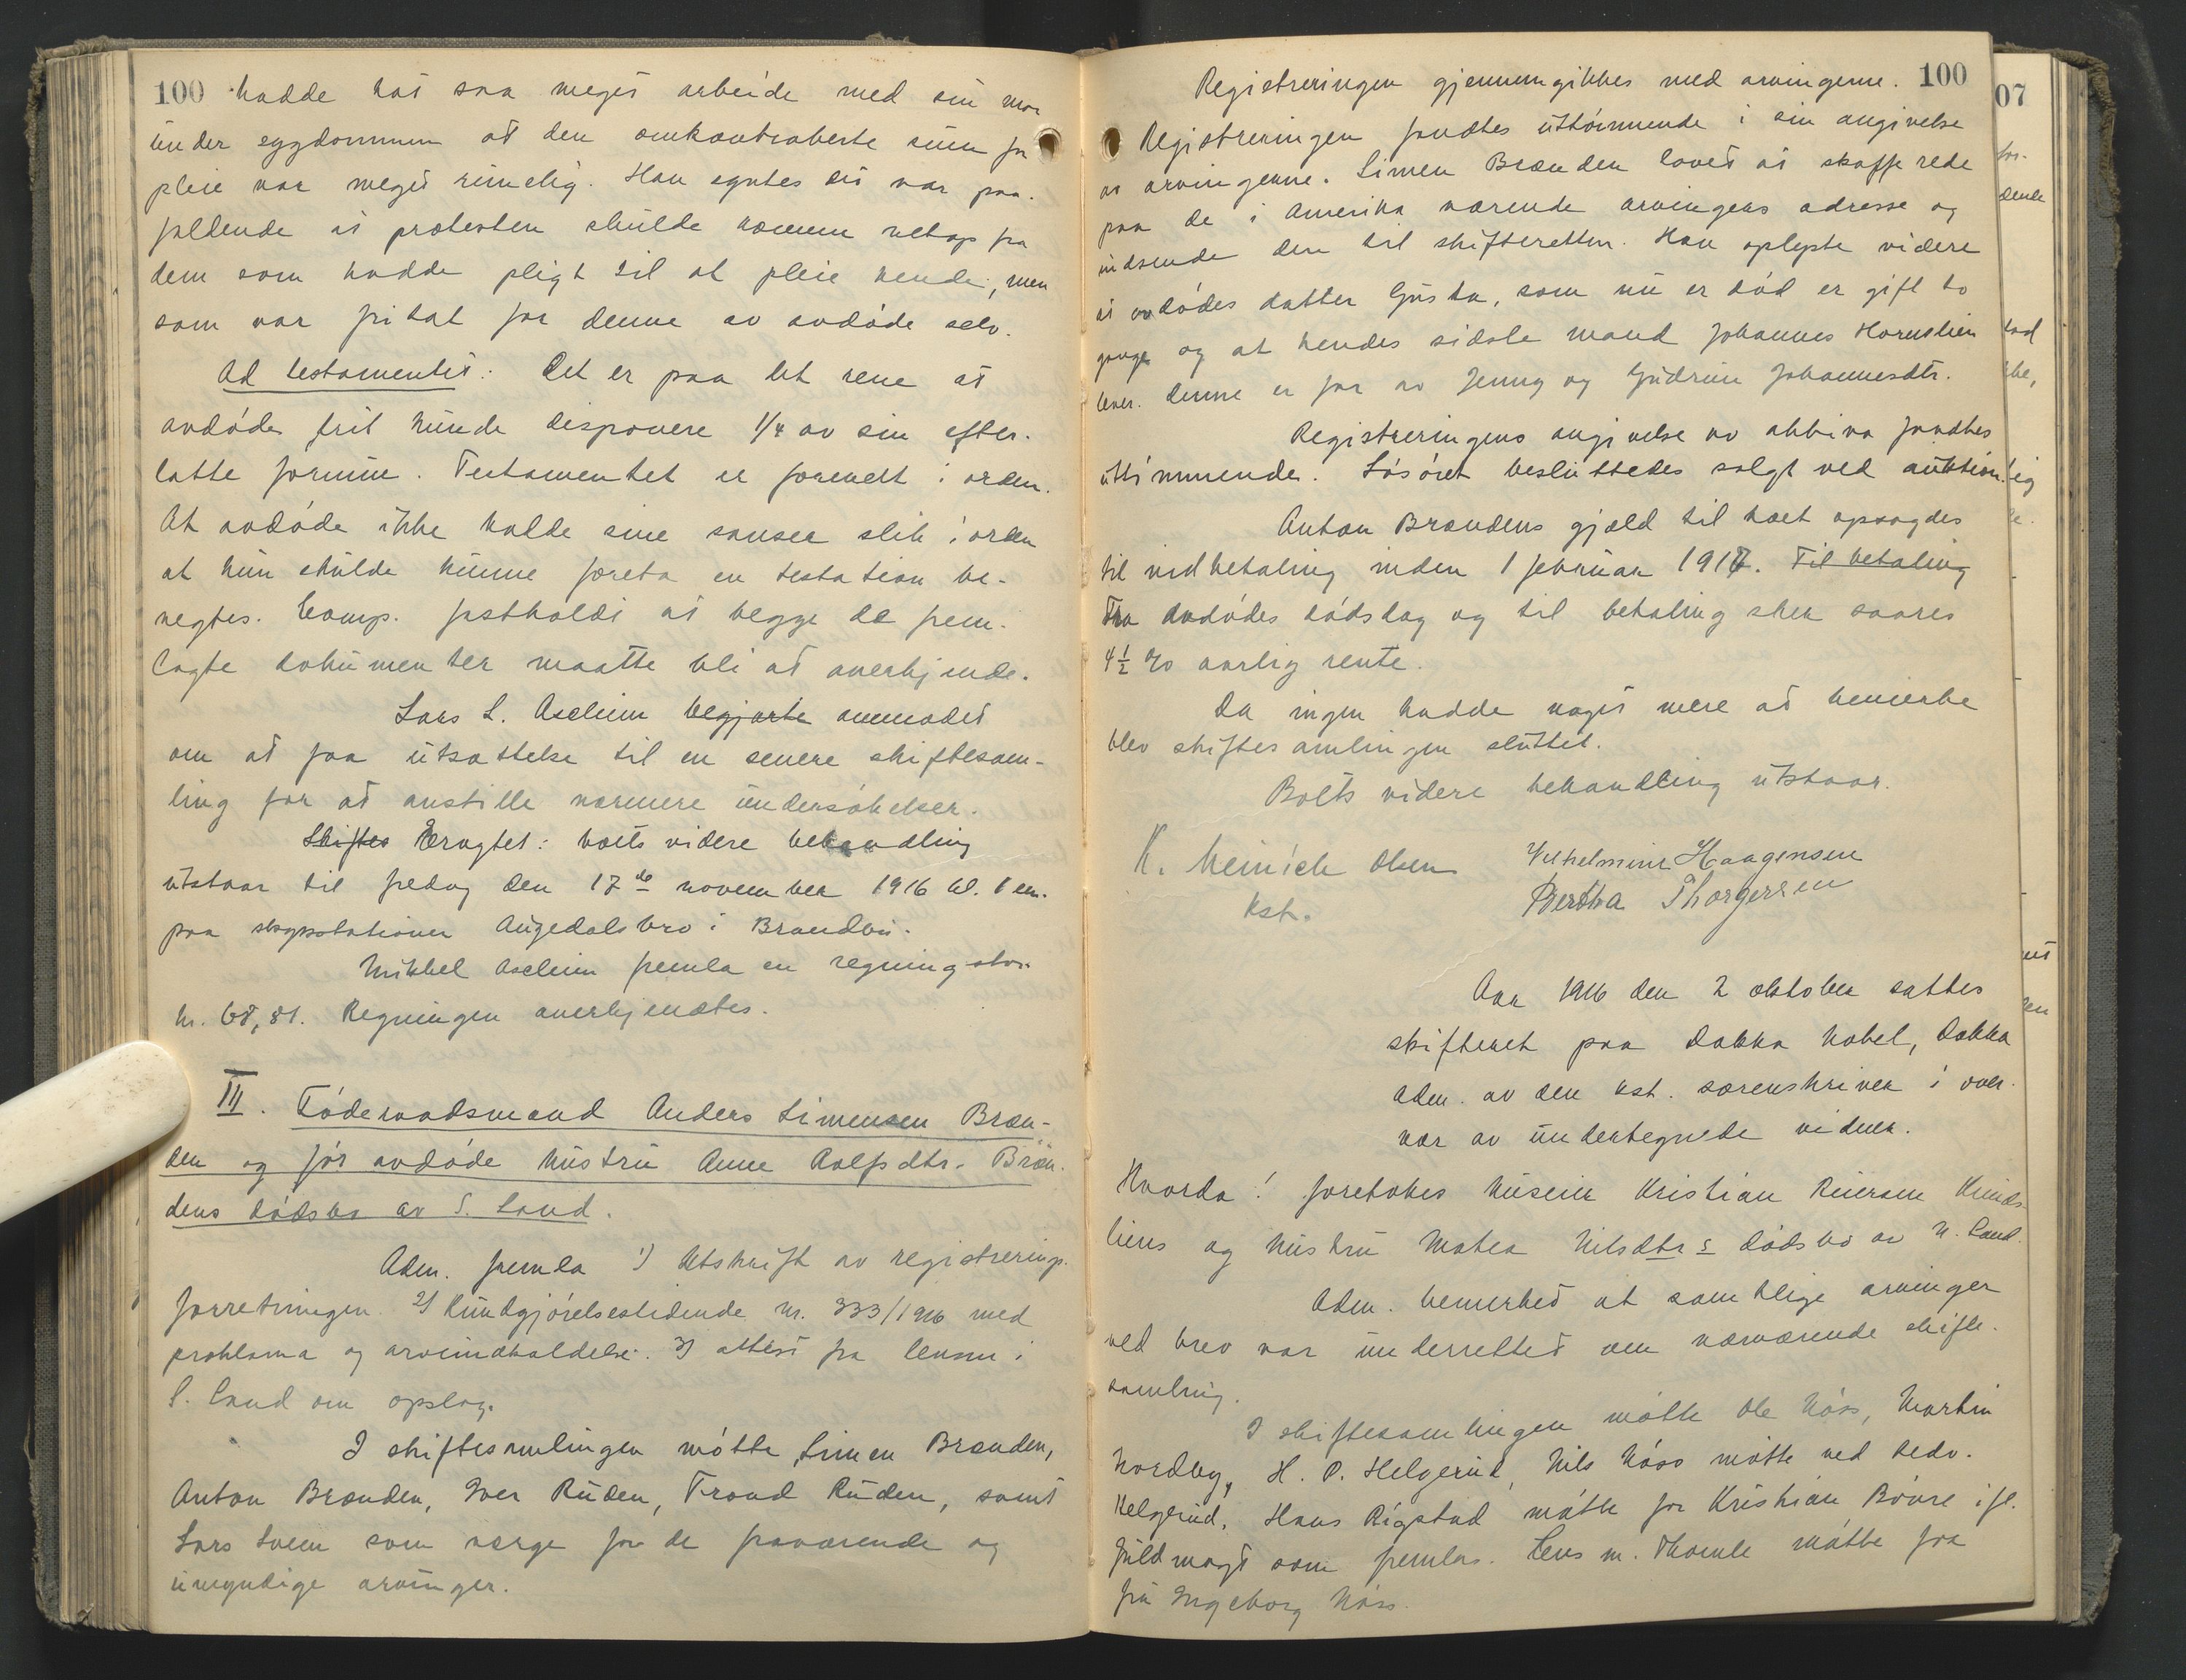 100 hadde hat saa meget arbeide med sin mor
under sygdommen at den omkontraherte sum for
pleie var meget rimelig. Han syntes det var paa-
faldende at protesten skulde komme netop fra
dem som hadde pligt til at pleie hende, men
som var fritat for denne av avdøde selv.
Ad testamentet: Det er paa det rene at
avdøde frit kunde disponere 1/4 av sin efter-
latte formue. Testamentet er forøvrigt i orden.
At avdøde ikke hadde sine sanser slik i orden
at hun skulde kunne foreta en testation be-
negtes. Comp. fastholdt at begge de frem-
lagte dokumenter maatte bli at anerkjende.
Lars L. Askeim begjærte anmodet
om at faa utsættelse til en senere skiftesam-
ling for at anstille nærmere undersøkelser.
Skiftes Eragtet: boets videre behandling
utstaar til fredag den 17de november 1916 kl. 1 em.
paa skysstationen Augedalsbro i Brandbu.
Mikkel Askeim fremla en regning stor
kr. 68,81. Regningen anerkjendtes.
III. Føderaadsmand Anders Simensen Bræn-
den og før avdøde hustru Anne Rolfsdtr. Bræn-
dens dødsbo av S. Land.
Adm. fremla 1) Utskrift av registrerings-
forretningen. 2) Kundgjørelsestidende nr. 333/1916 med
proklama og arveindkaldelse. 3) attest fra lensm. i
S. Land om opslag.
I skiftesamlingen møtte Simen Brænden,
Anton Brænden, Iver Ruden, Trond Ruden, samt
Lars Sveen som verge for de fraværende og
umyndige arvinger.
Registreringen gjennemgikkes med arvingerne. 100
Registreringen fandtes uttømmende i sin angivelse
av arvingerne. Simen Brænden lovet at skaffe rede
paa de i Amerika værende arvingers adresse og
indsende den til skifteretten. Han oplyste videre
at avdødes datter Gusta, som nu er død er gift to
ganger og at hendes sidste mand Johannes Hornslien
lever. Denne er far av Jenny og Gudrun Johannesdtr.
Registreringens angivelse av aktiva fandtes
uttømmende. Løsøret besluttedes solgt ved auktion.
Anton Brændens gjæld til boet opsagdes
til indbetaling inden 1 februar 1917. Til betaling
Fra avdødes dødsdag og til betaling sker svares
4 1/2 % aarlig rente.
Da ingen hadde noget mere at bemerke
blev skiftesamlingen sluttet.
Boets videre behandling utstaar.
K. Meinich Olsen Vilhelmine Haagensen
kst. Bertha Thorgersen
Aar 1916 den 2 oktober sattes
skifteret paa Dokka hotel, Dokka
adm. av den kst. sorenskriver i over-
vær av undertegnede vidner.
Hvorda! foretokes huseier Kristian Reiersen Kinds-
liens og hustru Matea Nilsdtrs dødsbo av N. Land.
Adm. bemerket at samtlige arvinger
ved brev var underrettet om nærværende skifte-
samling.
I skiftesamlingen møtte Ole Høss, Martin
Nordby, H. P. Helgerud, Nils Høss møtte ved Pedr.
Helgerud. Hans Rigstad møtte for Kristian Bøvre ifl.
fuldmagt som fremlas. Lensm. Thomle møtte for
fru Ingeborg Høss.
07